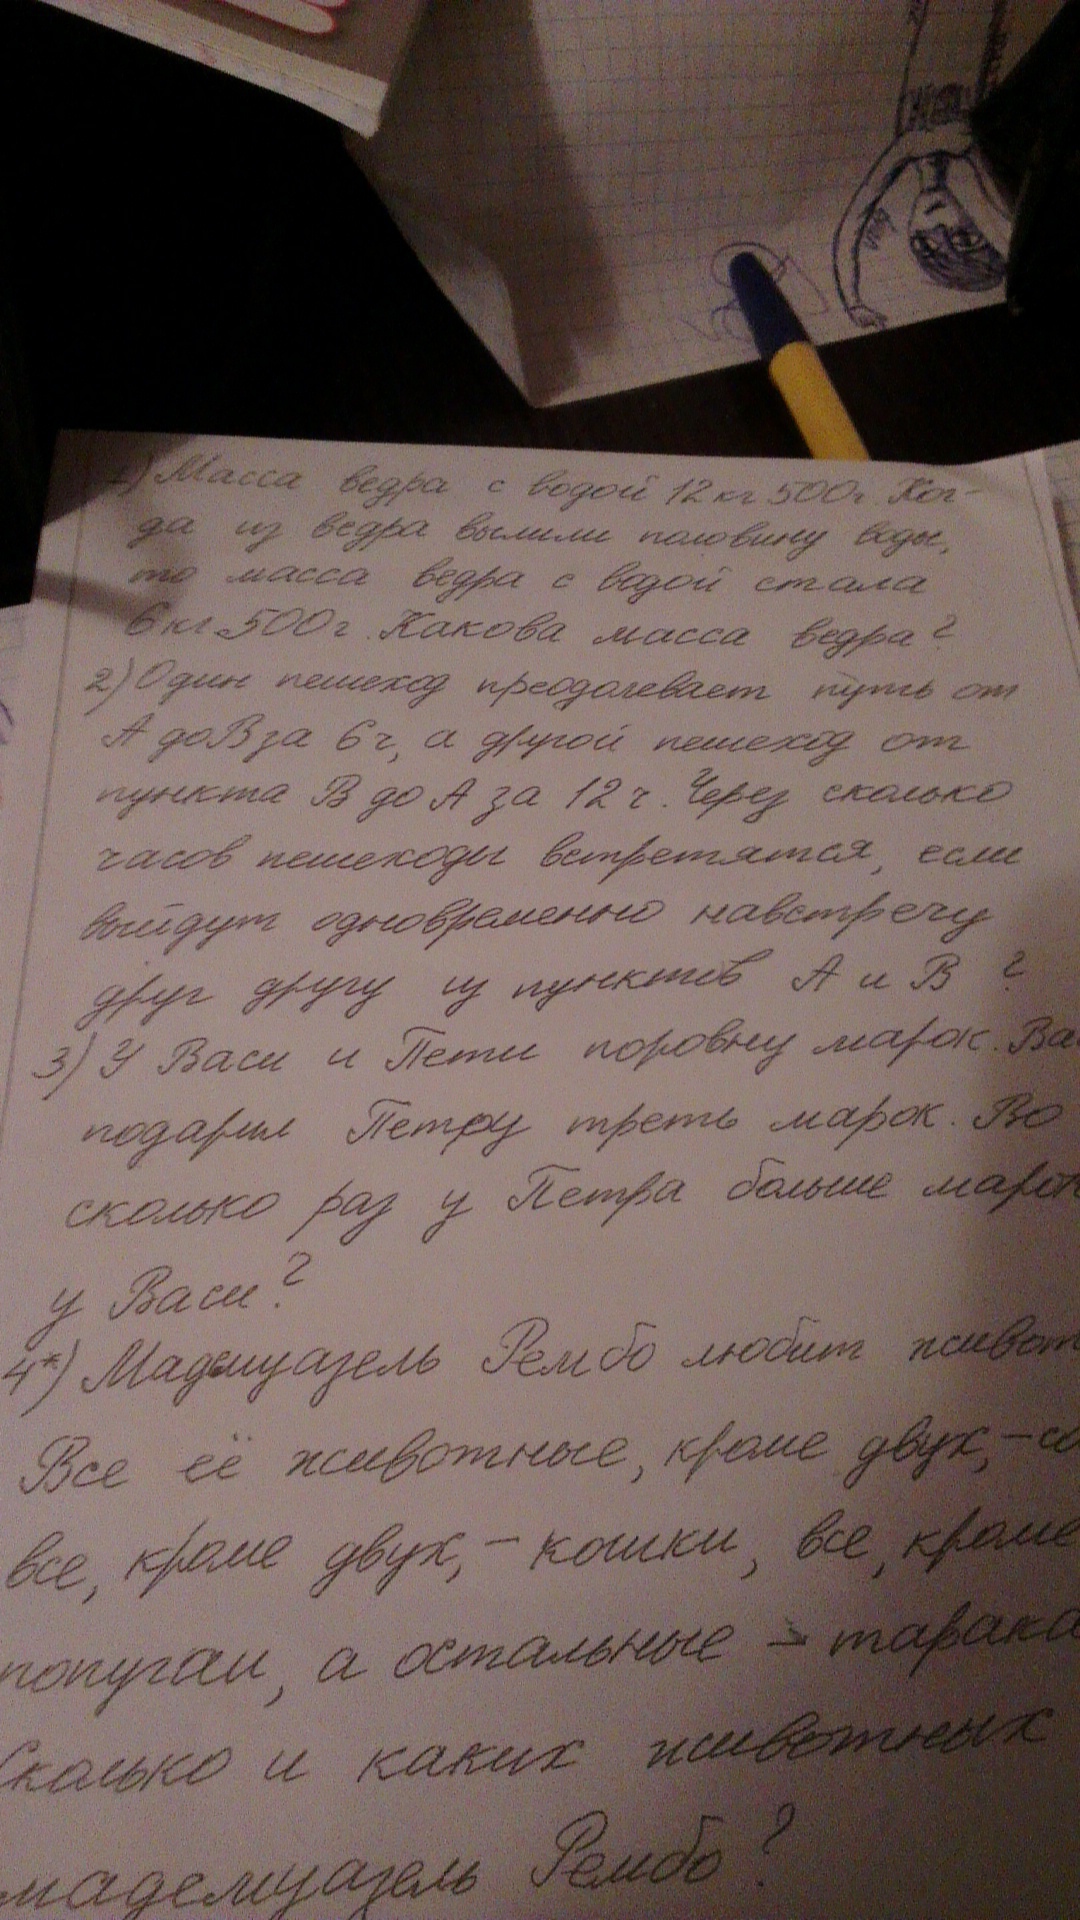 1) Масса ведра с водой 12 кг 500г. Ког-
да из ведра вылили половину воды,
то масса ведра с водой стала
6 кг 500г. Какова масса ведра?
2) Один пешеход преодолевает путь от
А до В за 6 ч, а другой пешеход от
пункта В до А за 12 ч. Через сколько
часов пешеходы встретятся, если
выйдут одновременно навстречу
друг другу из пунктов А и В ?
3) У Васи и Пети поровну марок. Ва
подарил Петру треть марок. Во
сколько раз у Петра больше марок
у Васи?
4*) Мадемуазель Рембо любит живот
Все её животные, кроме двух, - со
все, кроме двух, - кошки, все, кроме
попугаи, а остальные - тарака
Сколько и каких животных
мадемуазель Рембо?